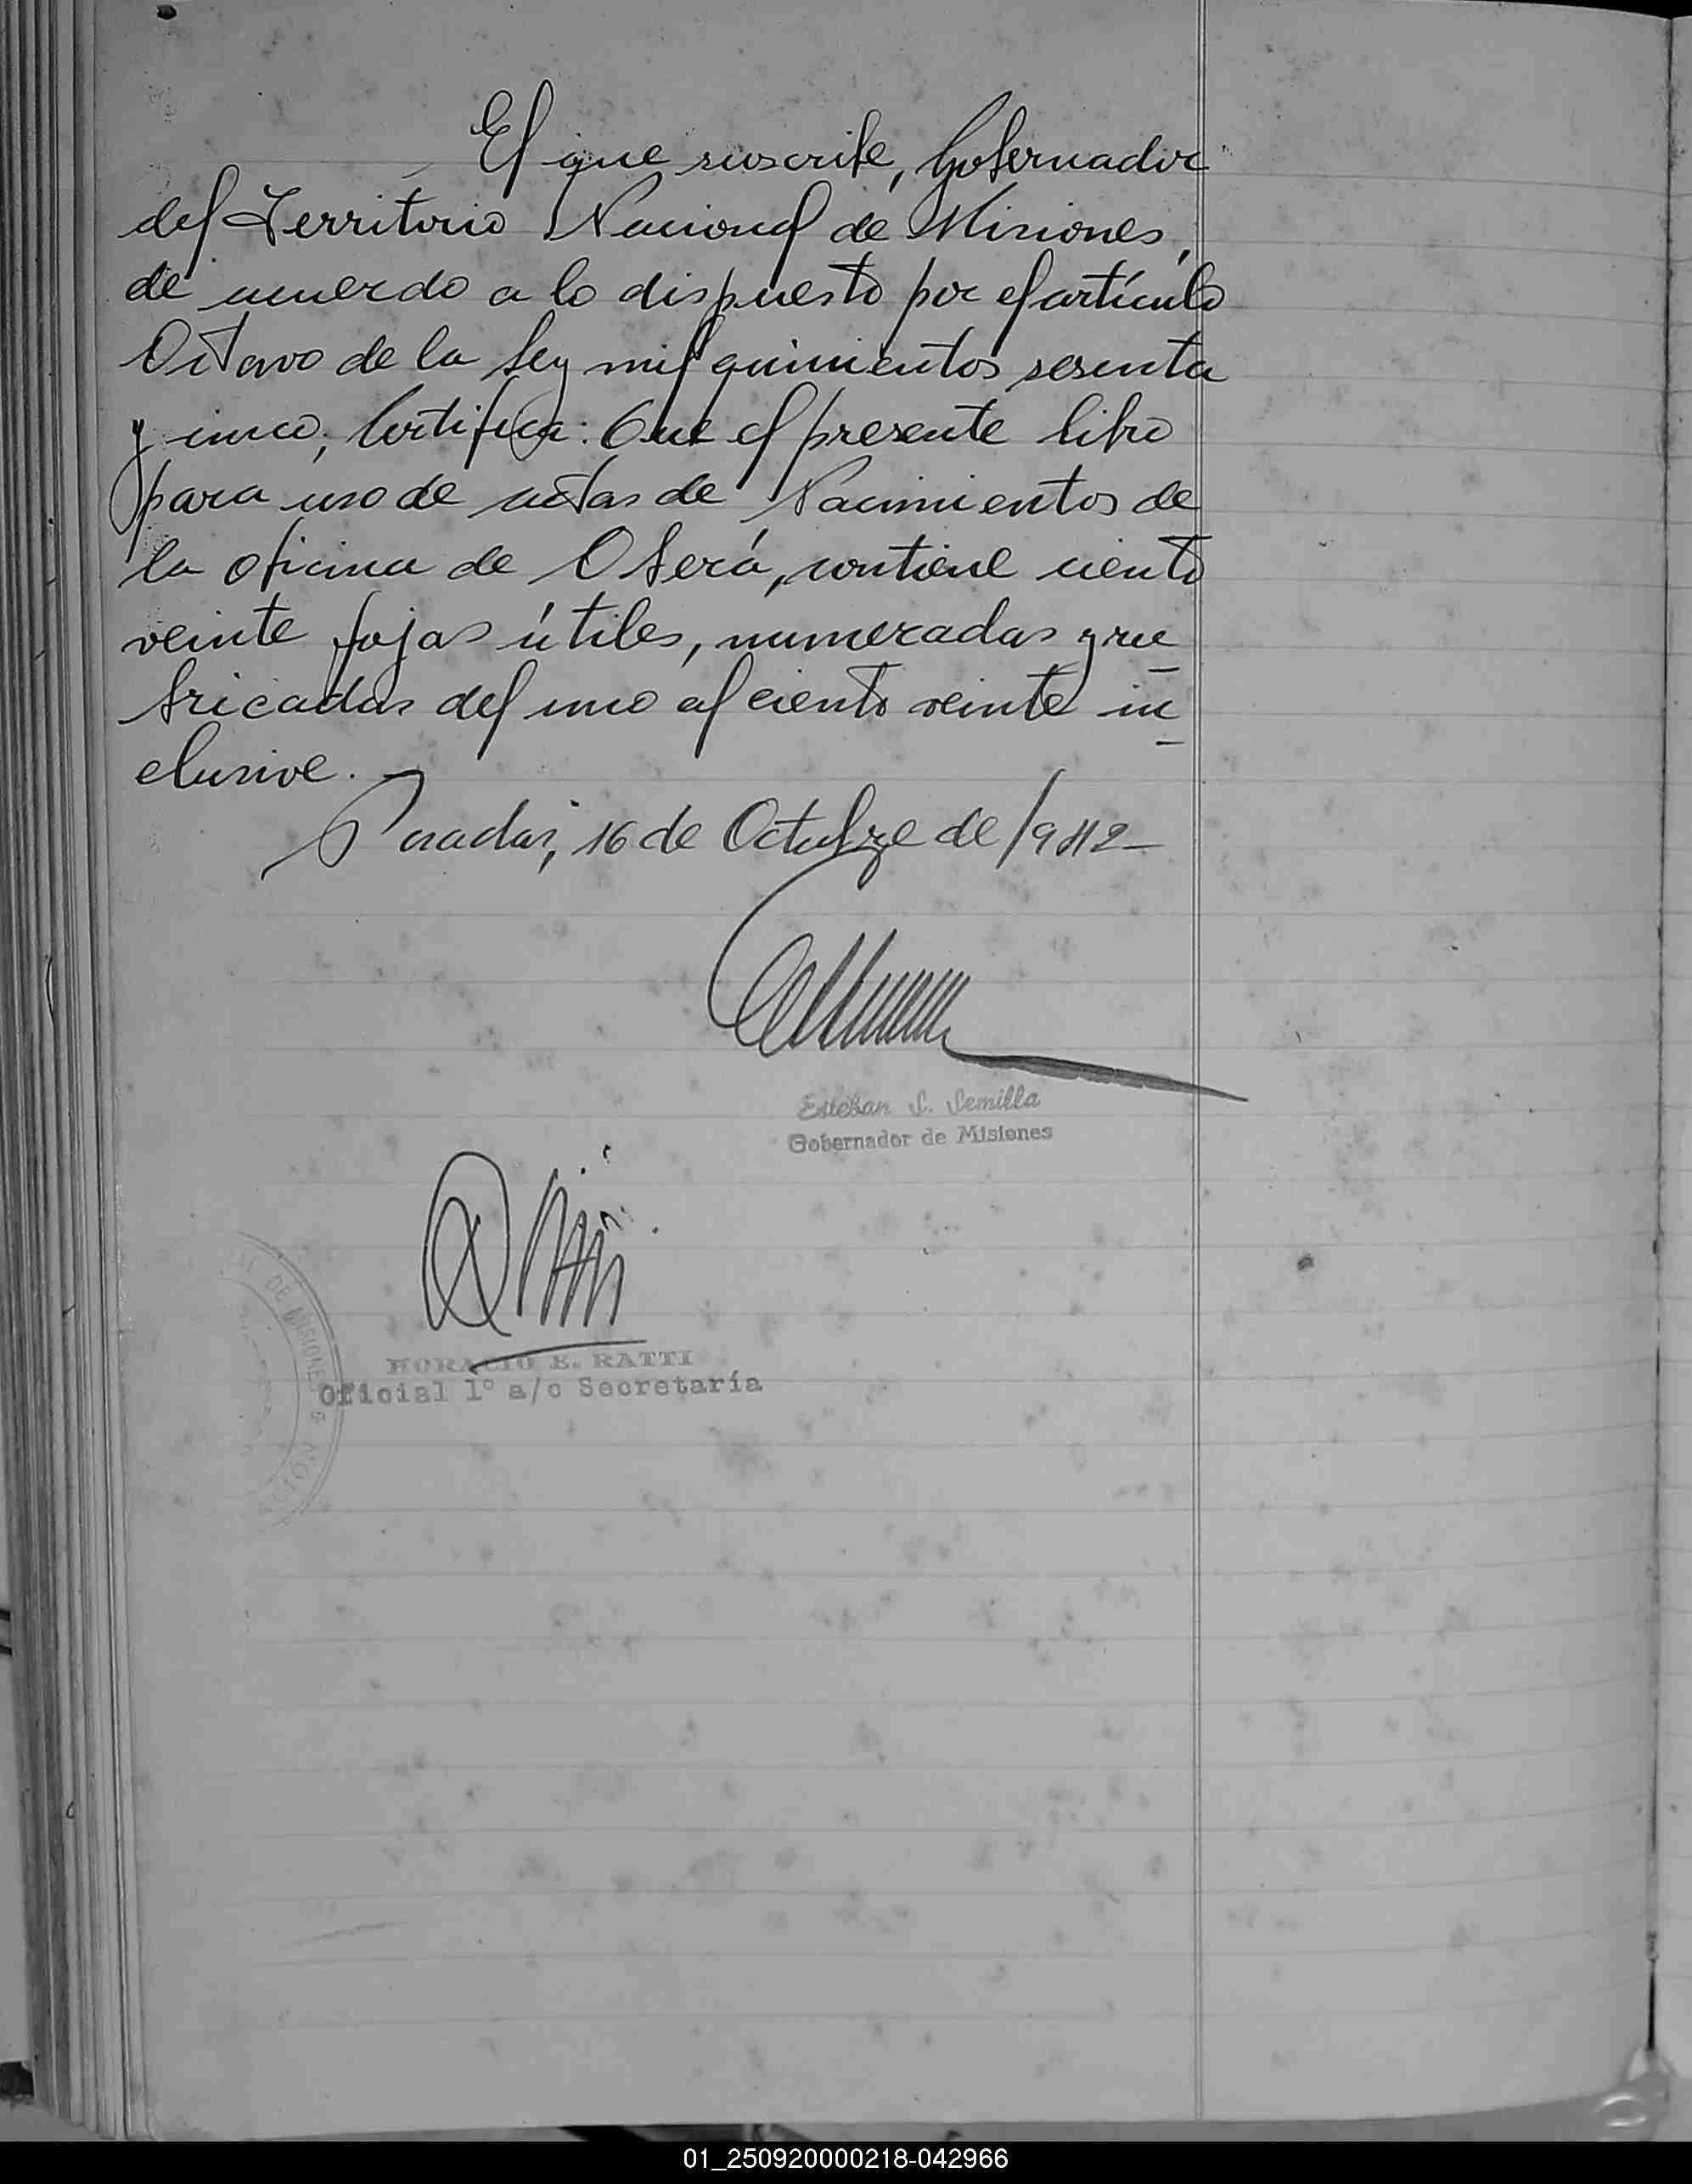 El que suscribe, Gobernador
del Territorio Nacional de Misiones,
de acuerdo a lo dispuesto por el artículo
Octavo de la Ley mil quinientos sesenta
y cinco; Certifica: Que el presente libro
para uso de actas de Nacimientos de
la oficina de Oberá, contiene ciento
veinte fojas útiles, numeradas y ru
bricadas del uno al ciento veinte in
clusive.
Posadas, 16 de Octubre de 1942
Esteban S. Semilla
Gobernador de Misiones
HORACIO E. RATTI
Oficial 1º a/c Secretaría
DE MISIONES
01_250920000218-042966